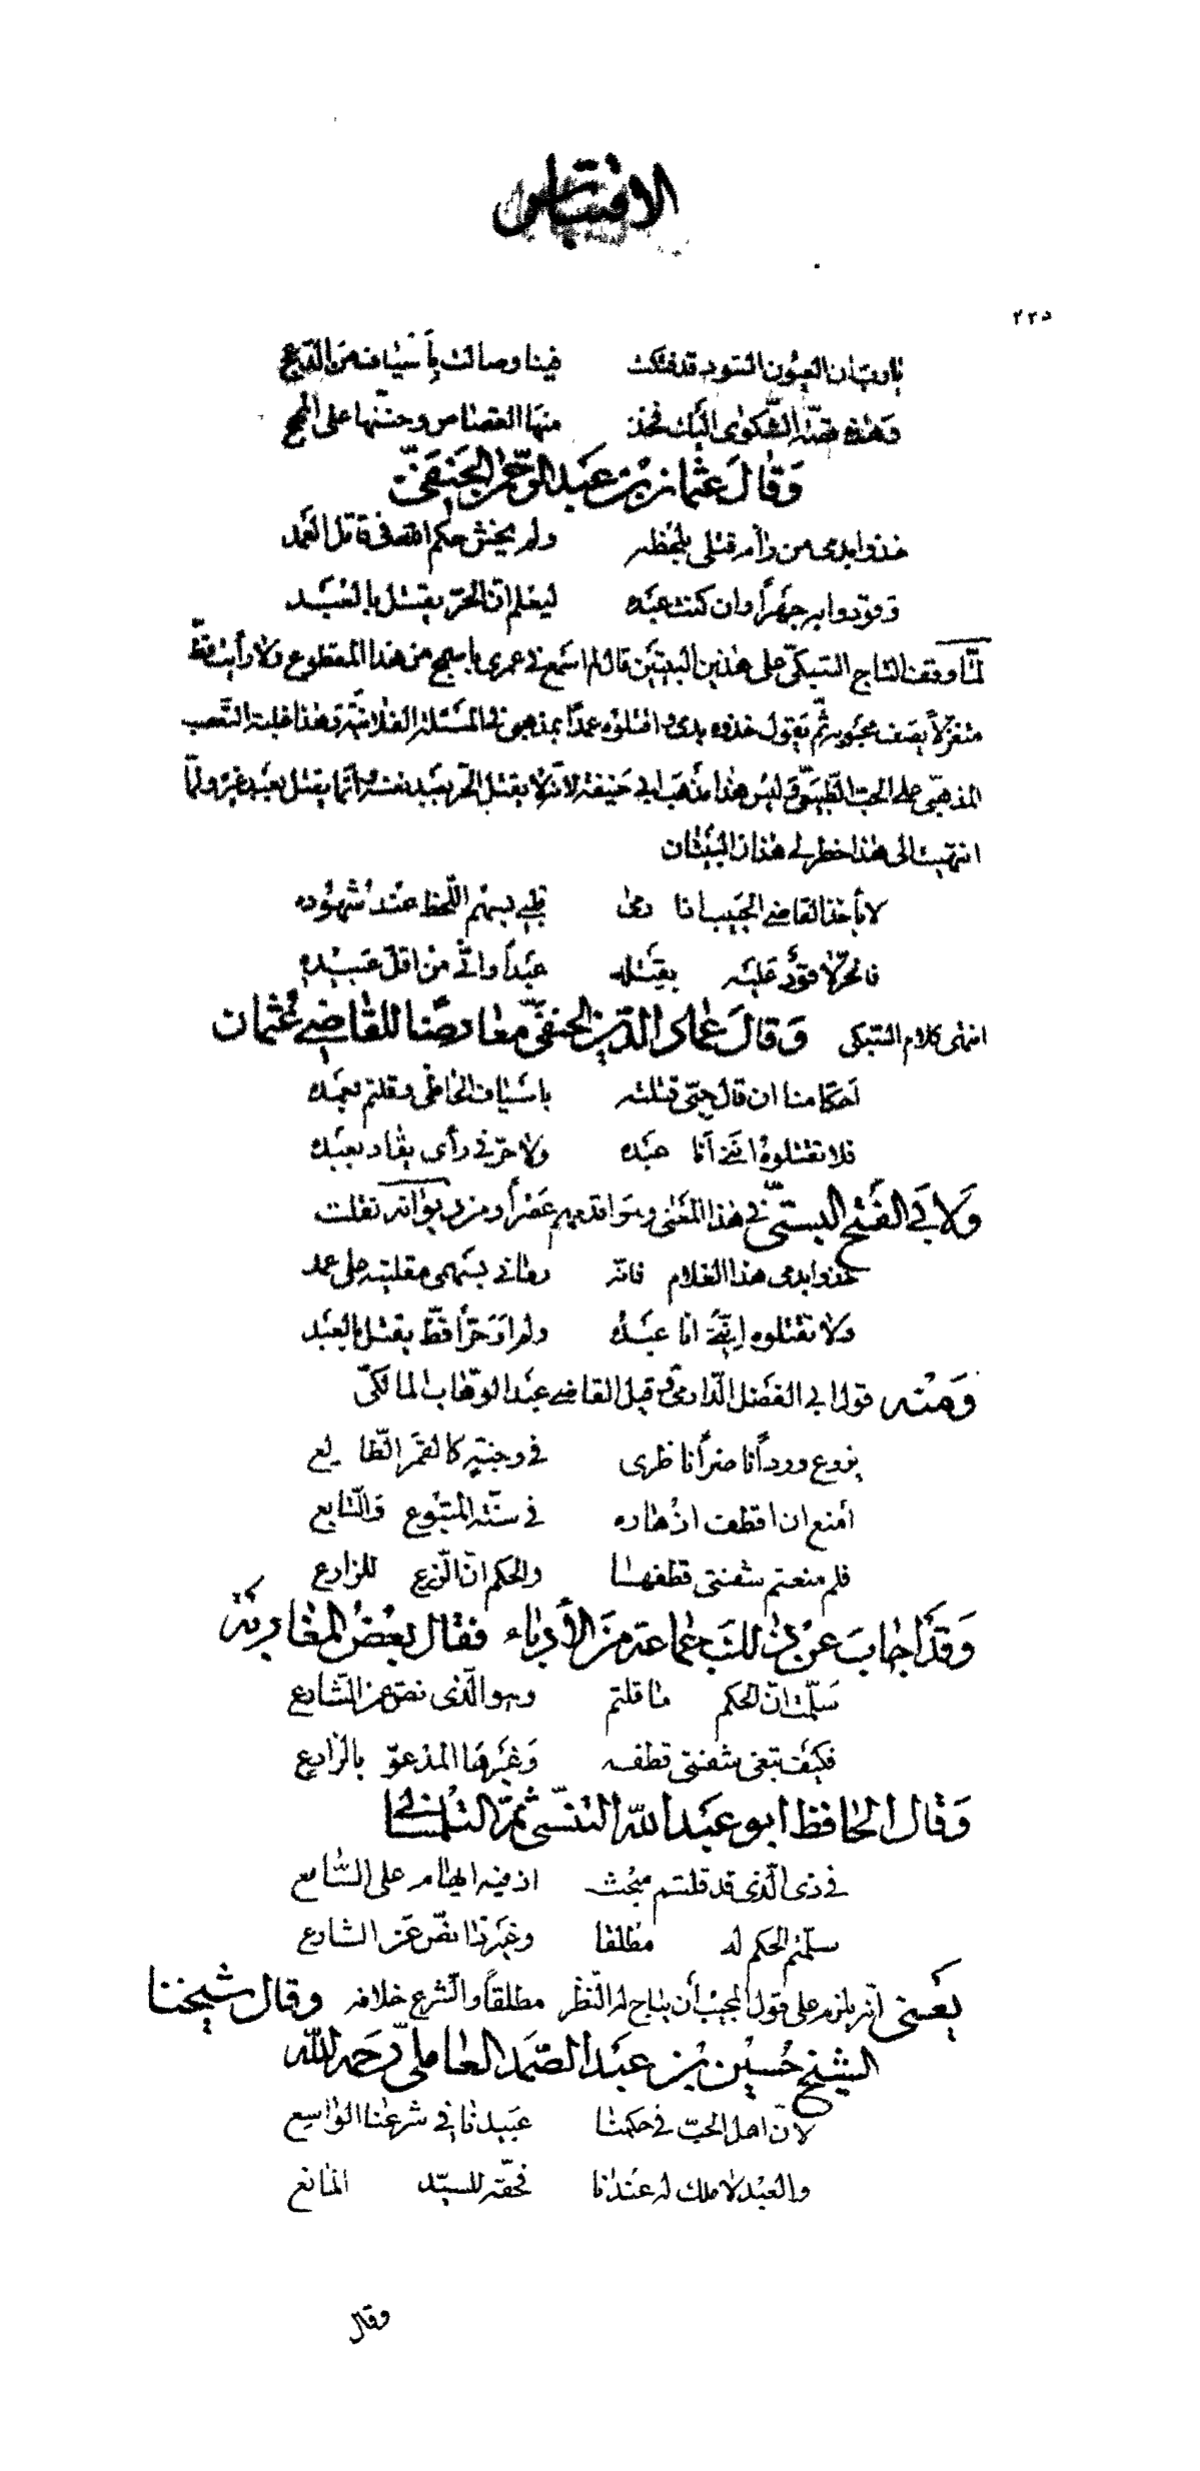 الاقتباس
٢٢٥
يا رب ان العيون السود قد فتكت فينا وصالت بأسياف من الدعج
وهذه قصة الشكوى اليك فخذ منها القصاص وحننها على المهج
وقال عثمان بن عبد الرحمن الحنفي
خذوا بدمي من رام قتلي بلحظه ولم يخش حكم الله في قاتل العمد
وقودوا به جهراً وان كنت عبده ليعلم ان الحر يقتل بالعبد
لما وقفنا التاج السبكي على هذين البيتين قال لم اسمع في عمري باسمج من هذا المقطوع ولا رأيت قط
متغزلاً يصف محبوبه ثم يقول خذوه بدمي اقتلوه عمداً بمذهبي في المسئلة الفلانية وهذا غلبة التعصب
المذهبي على الحب الطبيعي وليس هذا مذهب ابي حنيفة لانه لا يقتل الحر بعبد نفسه انما يقتل بعبد غيره ولما
انتهيت الى هذا خطر لي هذان البيتان
لا يأخذ القاضي الحبيب اذا رمى قلبي بسهم اللحظ عند شهوده
فالحر لا قود عليه بقتله عبداً واني من اقل عبيده
انتهى كلام السبكي وقال عماد الدين الحنفي معارضا للقاضي عثمان
احكامنا ان قال حبي قتلته باسياف الحاظي وقلتم بعمده
فلا تقتلوه انني انا عبده ولا حر في رأي يقاد بعبده
ولابي الفتح البستي في هذا المعنى وهو اقدمهم عصراً ومن ديوانه نقلت
خذوا بدمي هذا الغلام فانه رماني بسهمي مقلتيه على عمد
ولا تقتلوه إنني انا عبده ولم ار حراً قط يقتل بالعبد
ومنه قول ابي الفضل الدارمي وقيل القاضي عبد الوهاب المالكي
يزرع ورداً ناضراً ناظري في وجنة كالقمر الطالع
أمنع ان اقطف ازهاره في سنة المتبوع والتابع
فلم منعتم شفتي قطفها والحكم ان الزرع للزارع
وقد اجاب عن ذلك جماعة من الأدباء فقال بعض المغاربة
سلمت ان الحكم ما قلتم وهو الذي نص عن الشارع
فكيف تبغي شفتي قطفه وغيرها المدعو بالزارع
وقال الحافظ ابو عبد الله التنسي ثم التلمساني
في ذي الذي قد قلتم مبحث اذ فيه ايهام على السامع
سلمتم الحكم له مطلقا وغير ذا نص عن الشارع
يعنى انه يلزم على قول المجيب أن يباح له النظر مطلقاً والشرع خلافه وقال شيخنا
الشيخ حسين بن عبد الصمد العاملي رحمه الله
لان اهل الحب في حكمنا عبيدنا في شرعنا الواسع
والعبد لا ملك له عندنا فحقه للسيد المانع
وقال